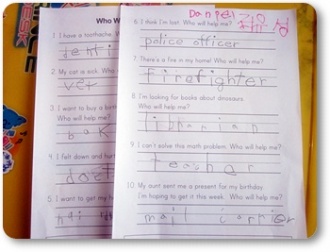 Who W
1. I have a toothache. W
denti
2. My cat is sick. Who
vet
3. I want to buy a
Who will help me?
bak
4. I fell down and hurt
doct
5. I want to get my
Daniel
6. I think I'm lost. Who will help me?
police officer
7. There's a fire in my home! Who will help me?
firefighter
8. I'm looking for books about dinosaurs.
Who will help me?
librarian
9. I can't solve this math problem. Who will help me?
teacher
10. My aunt sent me a present for my birthday.
I'm hoping to get it this week. Who will help me?
mail carrier